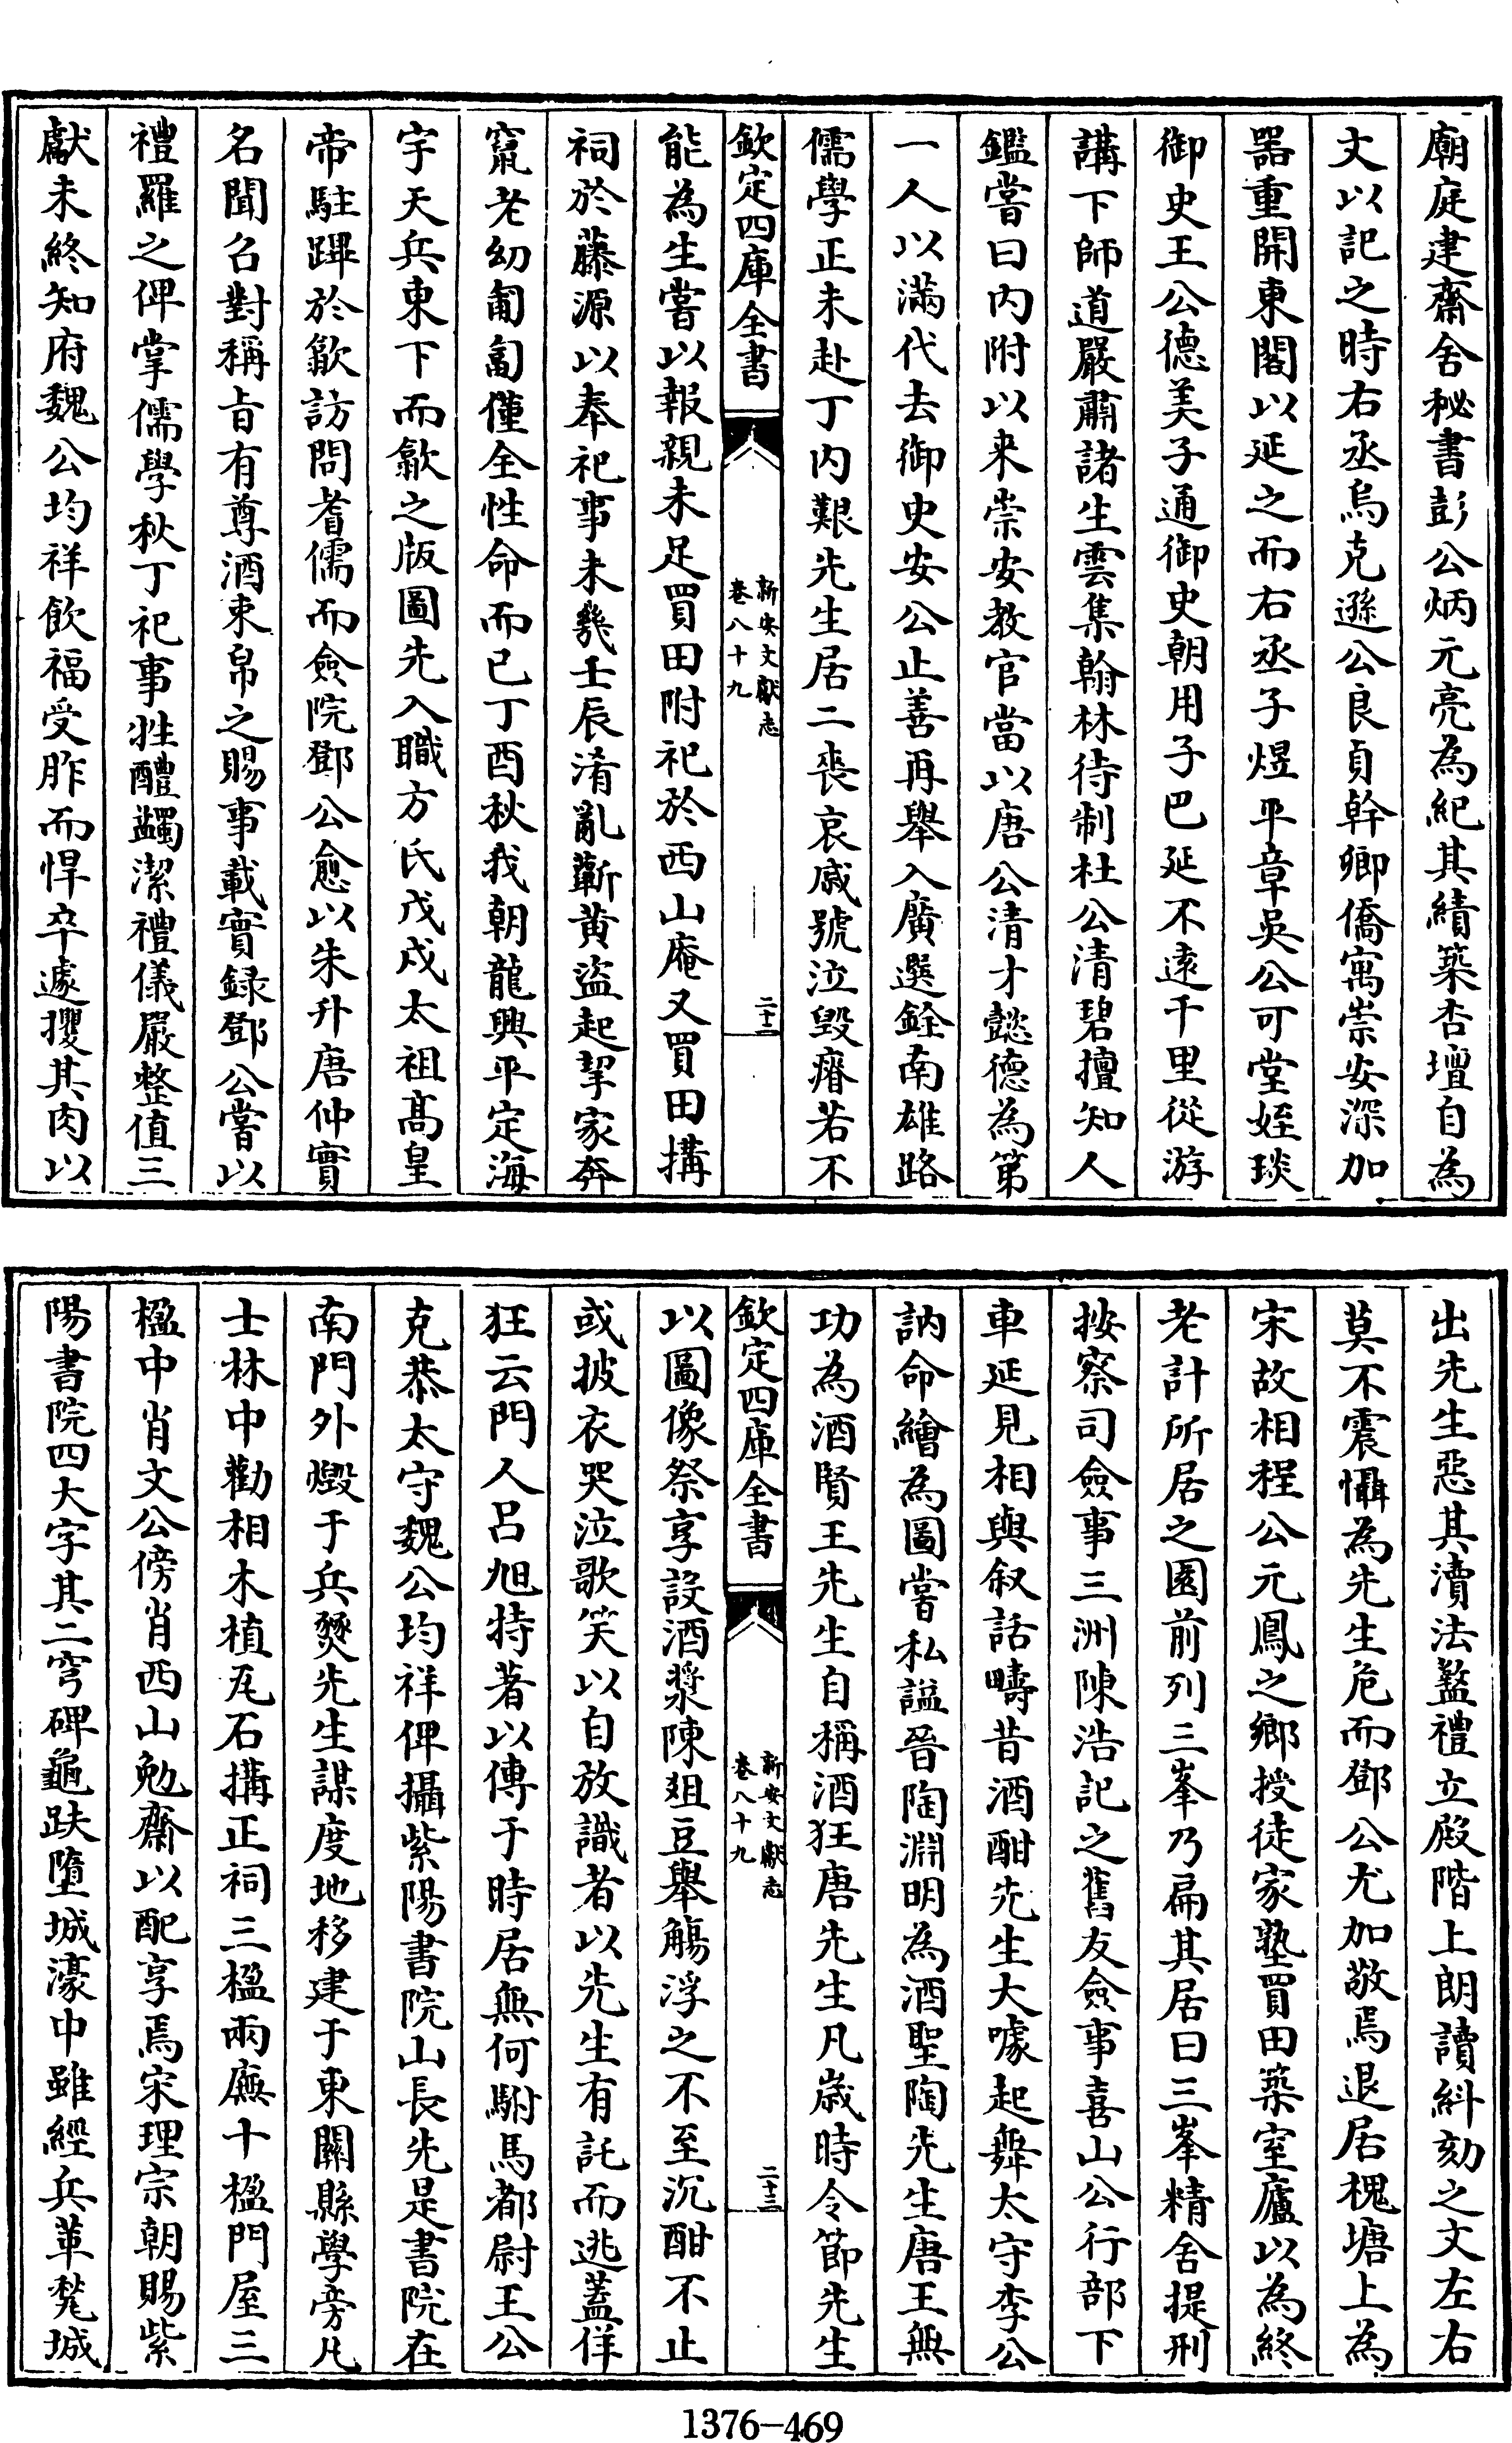 廟庭建齋舍秘書彭公炳元亮為紀其績築杏壇自為
文以記之時右丞烏克遜公良貞幹卿僑寓崇安深加
器重開東閣以延之而右丞子煜平章吳公可堂姪琰
御史王公德美子通御史朝用子巴延不遠千里從游
講下師道嚴肅諸生雲集翰林待制杜公清碧擅知人
鑑嘗曰内附以来崇安教官當以唐公清才懿德為第
一人以滿代去御史安公止善再舉入廣選銓南雄路
儒學正未赴丁内艱先生居二喪哀戚號泣毀瘠若不
欽定四庫全書
新安文獻志
卷八十九
二十二
能為生嘗以報親未足買田附祀於西山庵又買田搆
祠於藤源以奉祀事未幾壬辰淆亂蘄黄盜起挈家奔
竄老幼匍匐僅全性命而已丁酉秋我朝龍興平定海
宇天兵東下而歙之版圖先入職方氏戊戌太祖髙皇
帝駐蹕於歙訪問耆儒而僉院鄧公愈以朱升唐仲實
名聞召對稱旨有尊酒束帛之賜事載實録鄧公嘗以
禮羅之俾掌儒學秋丁祀事牲醴蠲潔禮儀嚴整值三
獻未終知府魏公均祥飲福受胙而悍卒遽攫其肉以
出先生惡其瀆法盭禮立殿階上朗讀糾劾之文左右
莫不震懾為先生危而鄧公尤加敬焉退居槐塘上為
宋故相程公元鳳之鄉授徒家塾買田築室廬以為終
老計所居之園前列三峯乃扁其居曰三峯精舍提刑
按察司僉事三洲陳浩記之舊友僉事喜山公行部下
車延見相與叙話疇昔酒酣先生大噱起舞太守李公
訥命繪為圖嘗私諡晉陶淵明為酒聖陶先生唐王無
功為酒賢王先生自稱酒狂唐先生凡歳時令節先生
欽定四庫全書
新安文獻志
卷八十九
二十三
以圖像祭享設酒漿陳俎豆舉觴浮之不至沉酣不止
或披衣哭泣歌笑以自放識者以先生有託而逃蓋佯
狂云門人吕旭特著以傳于時居無何駙馬都尉王公
克恭太守魏公均祥俾攝紫陽書院山長先是書院在
南門外燬于兵燹先生謀度地移建于東關縣學旁凡
士林中勸相木植瓦石搆正祠三楹兩廡十楹門屋三
楹中肖文公傍肖西山勉齋以配享焉宋理宗朝賜紫
陽書院四大字其二穹碑龜趺墮城濠中雖經兵革甃城
1376-469